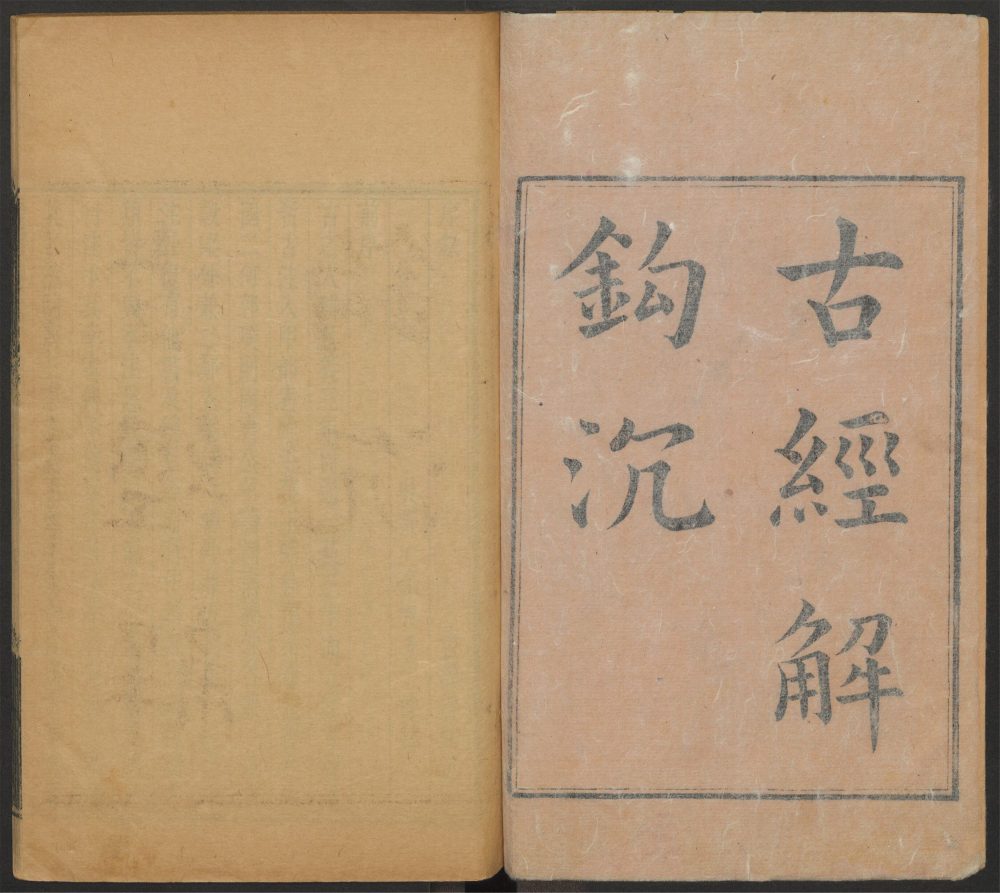 古經解
鈎沉